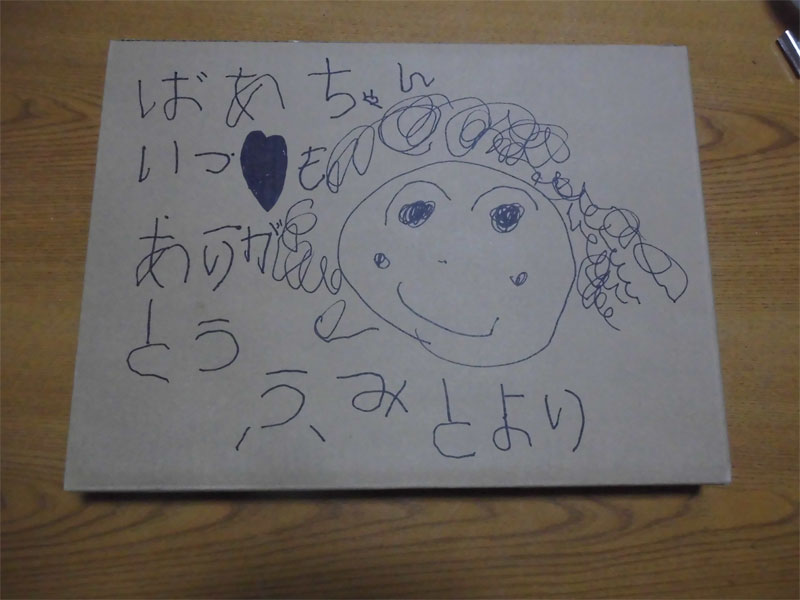 ばあちゃん
いつも
ありが
とう
ふみとより